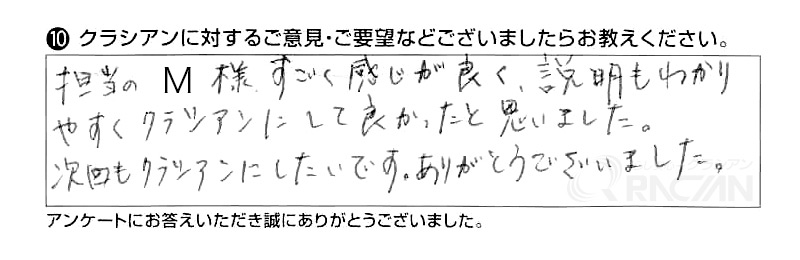 ⑩ クラシアンに対するご意見・ご要望などございましたらお教えください。
担当の M 様 すごく感じが良く、説明もわかり
やすくクラシアンにして良かったと思いました。
次回もクラシアンにしたいです。ありがとうございました。
アンケートにお答えいただき誠にありがとうございました。